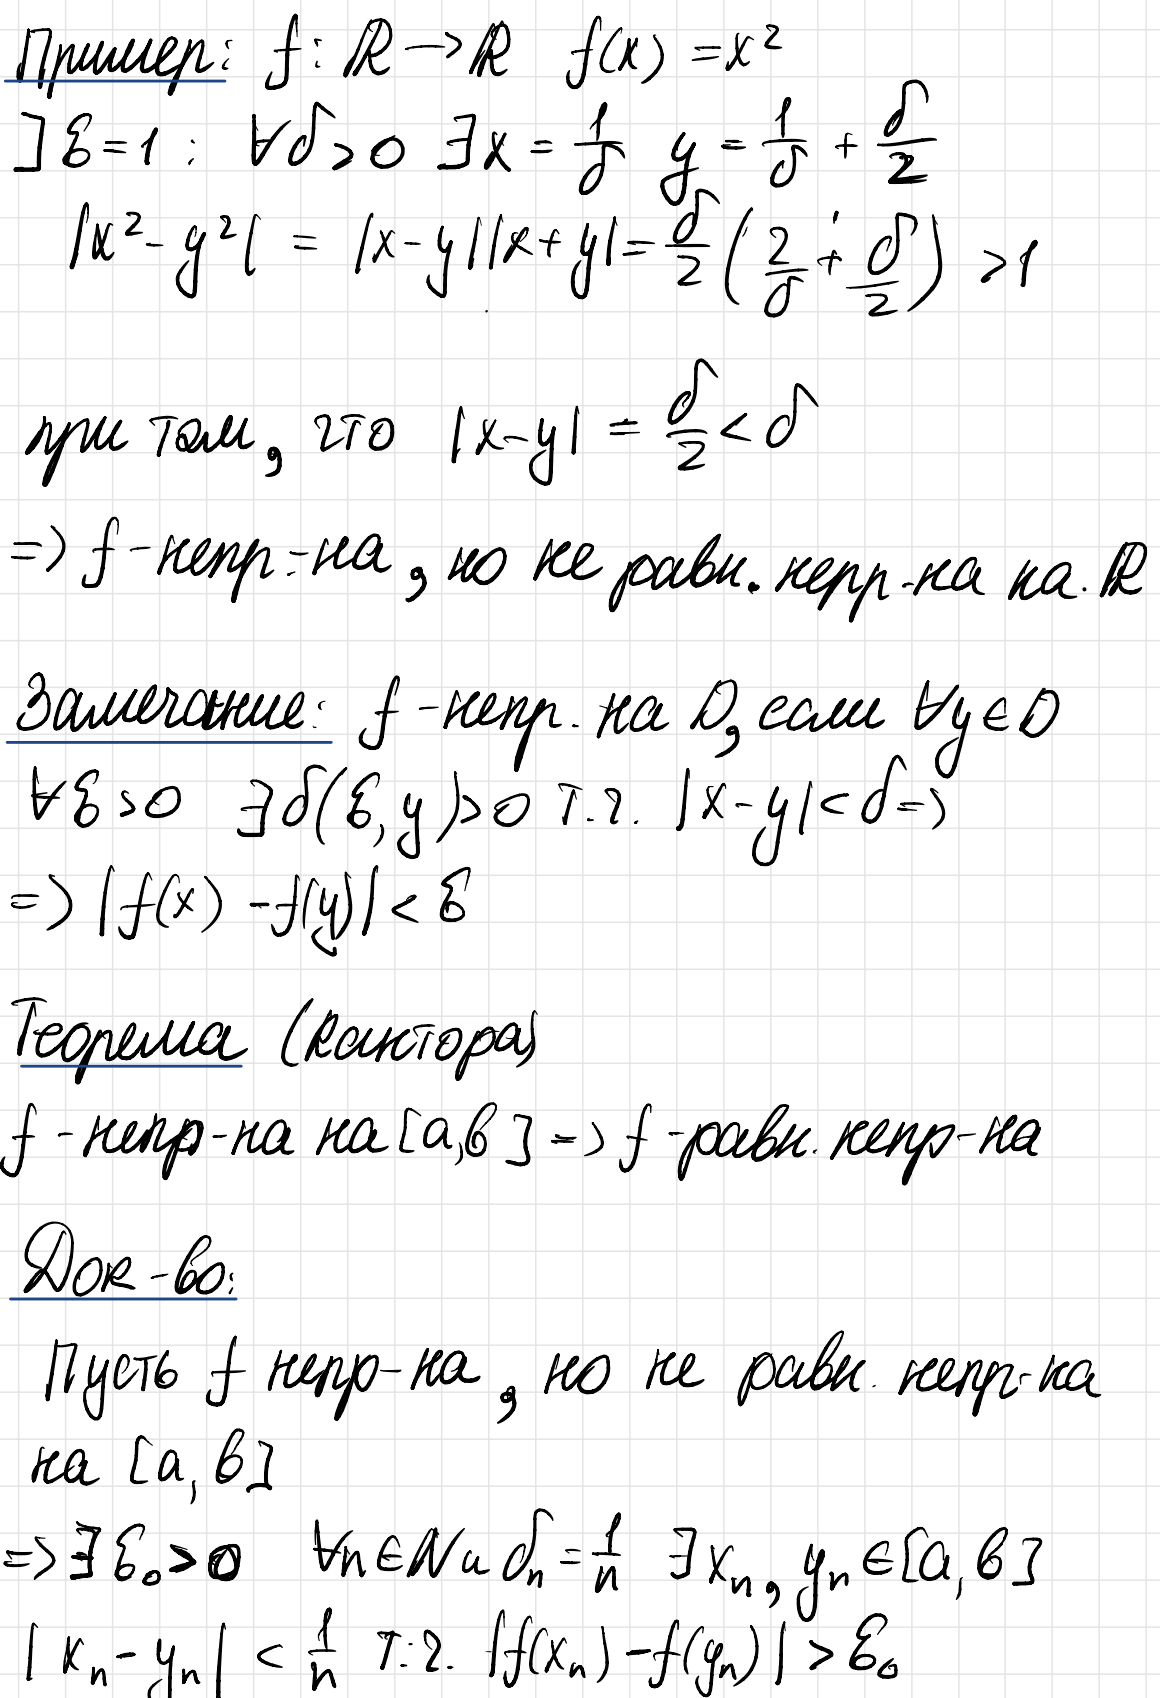 Пример: f: ℝ → ℝ f(x) = x²
∃ ε = 1 : ∀δ > 0 ∃x = 1/δ y = 1/δ + δ/2
|x² - y²| = |x - y||x + y| = δ/2 (2/δ + δ/2) > 1
при том, что |x - y| = δ/2 < δ
=> f - непр-на, но не равн. непр-на на ℝ
Замечание: f - непр. на D, если ∀y ∈ D
∀ε > 0 ∃δ(ε, y) > 0 т.ч. |x - y| < δ =>
=> |f(x) - f(y)| < ε
Теорема (Кантора)
f - непр-на на [a, b] => f - равн. непр-на
Док-во:
Пусть f непр-на, но не равн. непр-на
на [a, b]
=> ∃ ε₀ > 0 ∀n ∈ N и δₙ = 1/n ∃ xₙ, yₙ ∈ [a, b]
|xₙ - yₙ| < 1/n т.ч. |f(xₙ) - f(yₙ)| > ε₀